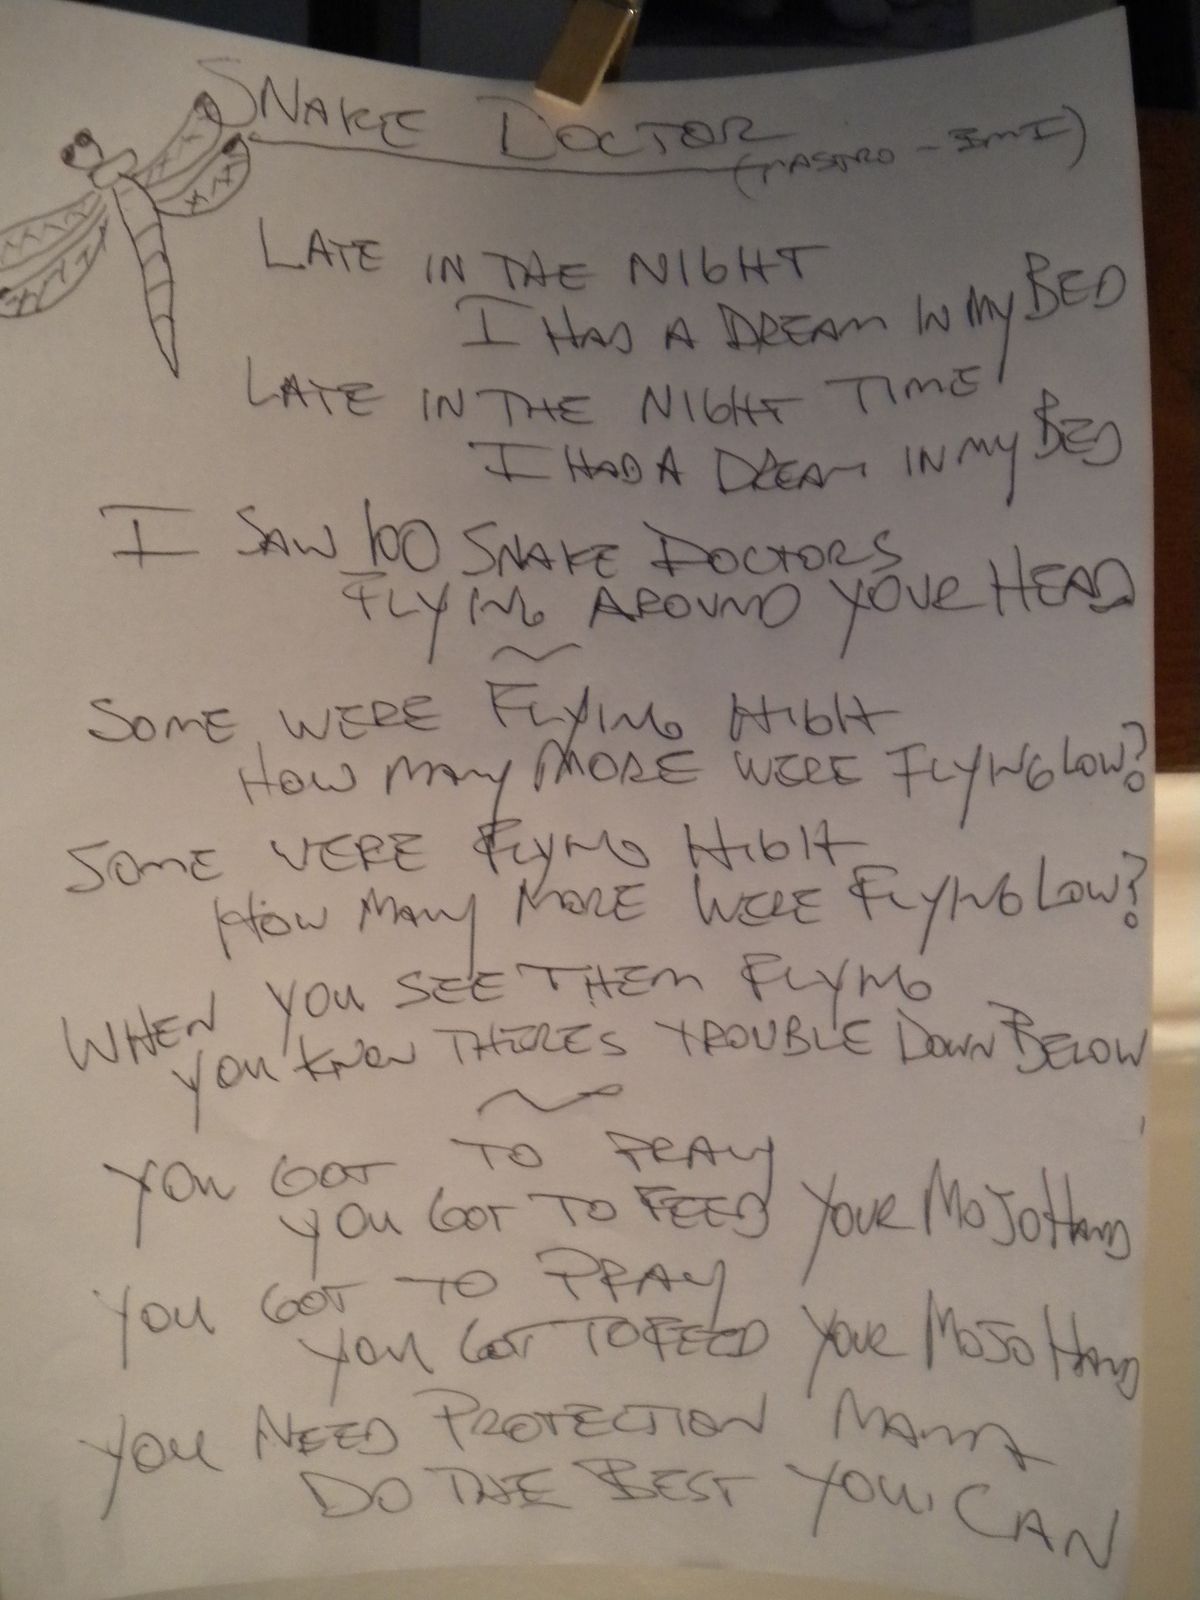 SNAKE DOCTOR
(MASTRO - BMI)
LATE IN THE NIGHT
I HAD A DREAM IN MY BED
LATE IN THE NIGHT TIME
I HAD A DREAM IN MY BED
I SAW 100 SNAKE DOCTORS
FLYING AROUND YOUR HEAD
SOME WERE FLYING HIGH
HOW MANY MORE WERE FLYING LOW?
SOME WERE FLYING HIGH
HOW MANY MORE WERE FLYING LOW?
WHEN YOU SEE THEM FLYING
YOU KNOW THERES TROUBLE DOWN BELOW
YOU GOT TO PRAY
YOU GOT TO FEED YOUR MOJO HAND
YOU GOT TO PRAY
YOU GOT TO FEED YOUR MOJO HAND
YOU NEED PROTECTION MAMA
DO THE BEST YOU CAN